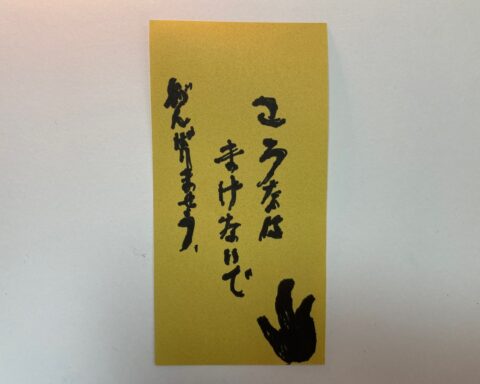 ころなに
まけないで
がんばりませう、